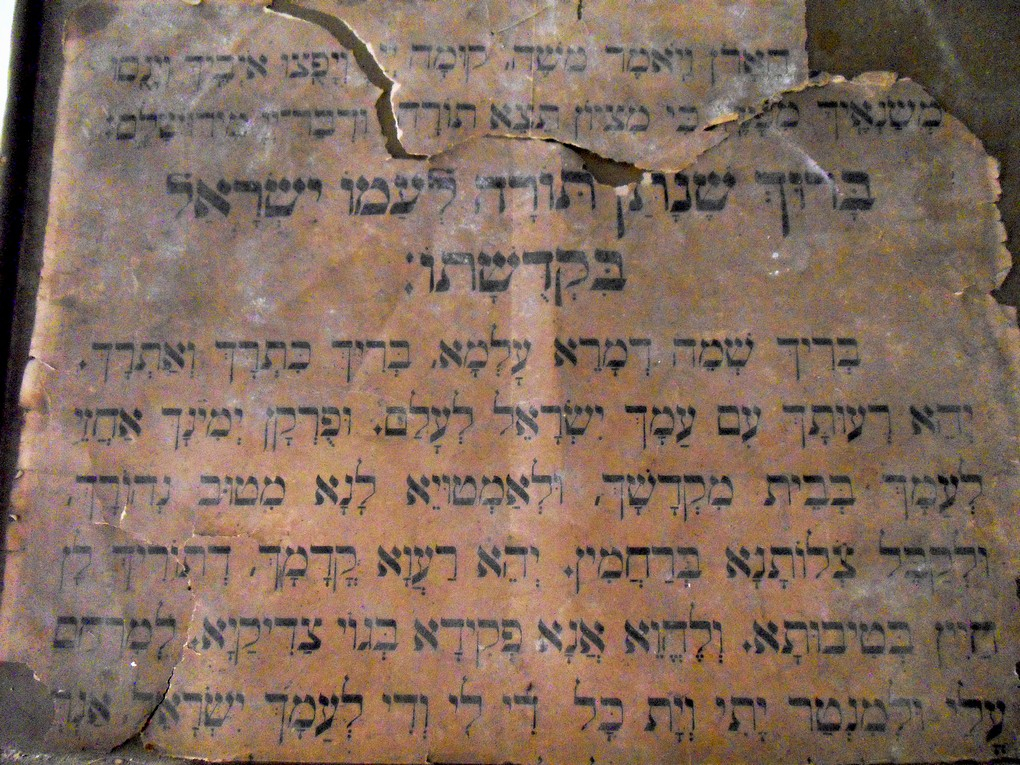 הארן ויאמר משה קומה יי ויפצו איביך וינסו
משנאיך כי מציון תצא תורה ודבר יי מירושלם:
בָּרוּךְ שֶׁנָּתַן תּוֹרָה לְעַמּוֹ יִשְׂרָאֵל
בִּקְדֻשָּׁתוֹ:
בְּרִיךְ שְׁמֵהּ דְּמָרֵא עָלְמָא, בְּרִיךְ כִּתְרָךְ וְאַתְרָךְ.
יְהֵא רְעוּתָךְ עִם עַמָּךְ יִשְׂרָאֵל לְעָלַם. וּפֻרְקַן יְמִינָךְ אַחֲזֵי
לְעַמָּךְ בְּבֵית מִקְדָּשָׁךְ, וּלְאַמְטוּיֵא לָנָא מִטּוּב נְהוֹרָךְ,
וּלְקַבֵּל צְלוֹתָנָא בְּרַחֲמִין. יְהֵא רַעֲוָא קֳדָמָךְ, דְּתוֹרִיךְ לָן
חַיִּין בְּטִיבוּתָא. וְלֶהֱוֵא אֲנָא פְקִידָא בְּגוֹ צַדִּיקַיָּא, לְמִרְחַם
עֲלַי וּלְמִנְטַר יָתִי וְיָת כָּל דִּי לִי וְדִי לְעַמָּךְ יִשְׂרָאֵל, אַנְתְּ